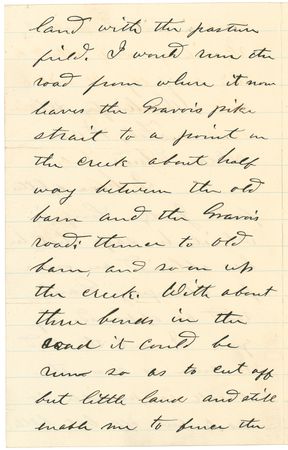 land with the pasture
field. I would run the
road from where it now
leaves the Gravois pike
strait to a point on
the creek about half
way between the old
barn and the Gravois
road; thence to old
barn, and so on up
the creek. With about
three bends in the
road it could be
run so as to cut off
but little land and still
enable me to fence the